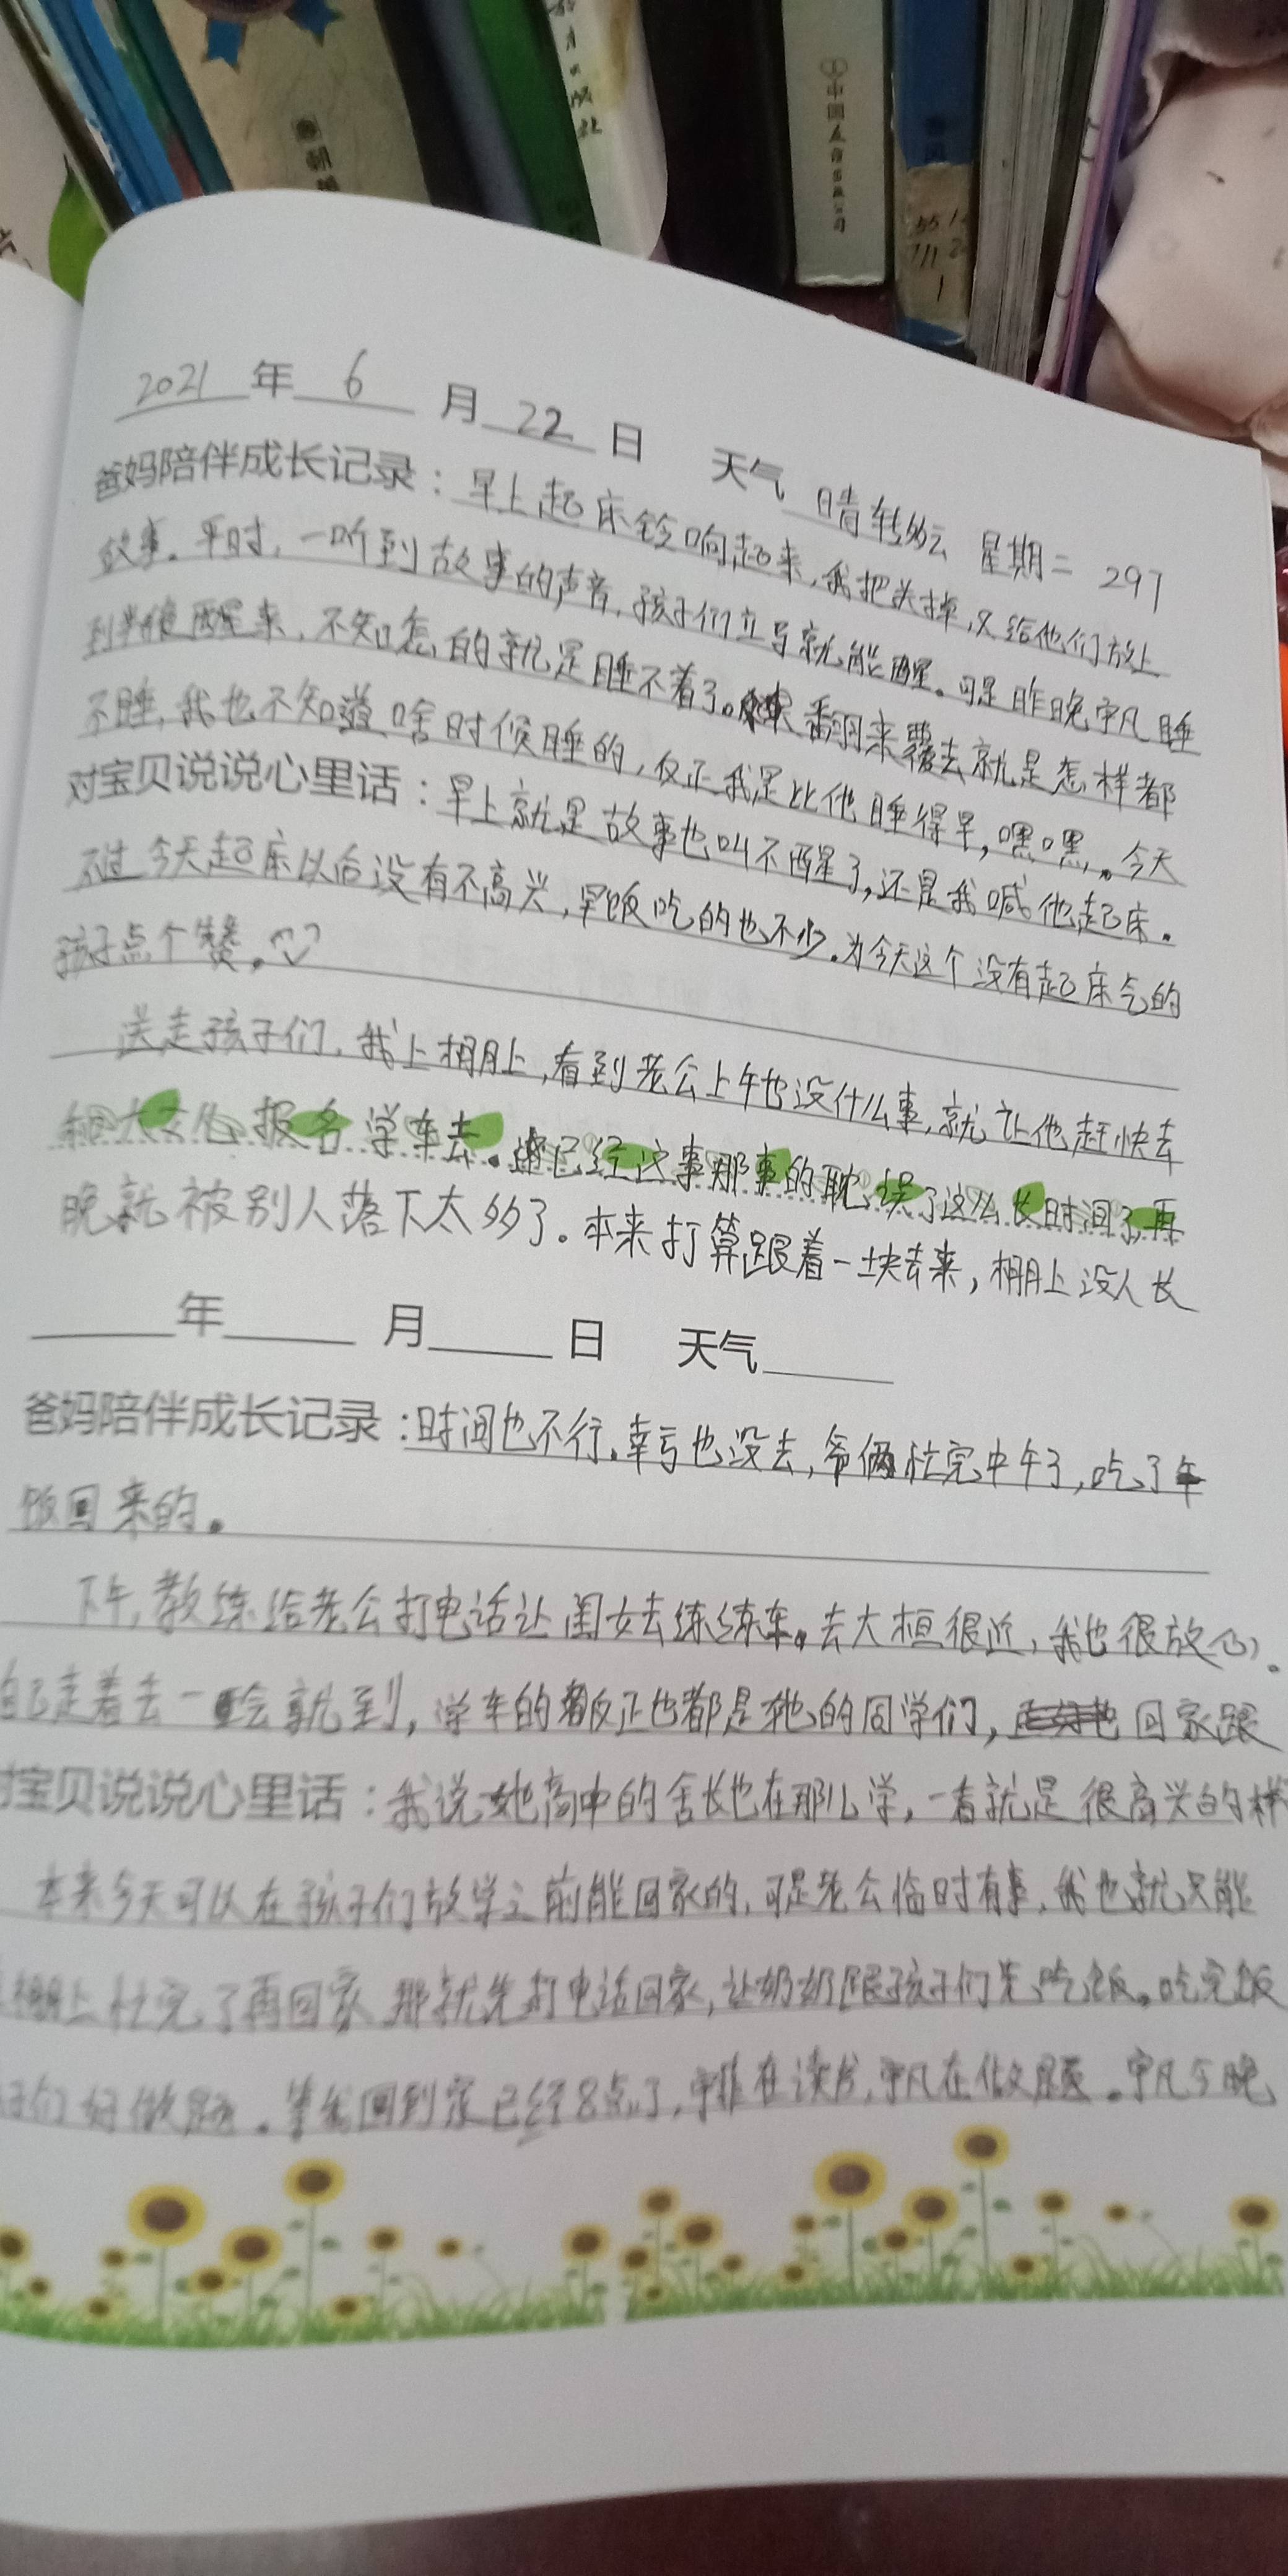 中国
55 1
711 2
1
2021 年 6 月 22 日 天气 晴转多云 星期二 297
爸妈陪伴成长记录：早上起床铃响起来，我把关掉，又给他们放上
故事。平时，一听到故事的声音，孩子们立马就能醒。可是昨晚宇凡睡
到半夜醒来，不知怎的就是睡不着了。翻来覆去就是怎样都
不睡，我也不知道啥时候睡的，反正我是比他睡得早，嘿嘿。今天
对宝贝说说心里话：早上就是故事也叫不醒了，还是我喊他起床。
不过今天起床以后没有不高兴，早饭吃的也不少。为今天这个没有起床气的
孩子点个赞。
送走孩子们，我上棚上，看到老公上午也没什么事，就让他赶快去
报名学车去。已经这事那事的耽误了这么长时间了，再
晚就被别人落下太多了。本来打算跟着一块去来，棚上没人长
年 月 日 天气
爸妈陪伴成长记录：时间也不行。幸亏也没去，爷俩忙完中午了，吃了午
饭回来的。
下午，教练给老公打电话让闺女去练练车。去大桓很近，我也很放心。
自己走着去一会就到，学车的反正也都是她的同学们，回家跟
对宝贝说说心里话：我说她高中的舍长也在那儿学，一看就是很高兴的样
本来今天可以在孩子们放学之前能回家的，可是老公临时有事，我也就只能
棚上忙完了再回家 那就先打电话回家，让奶奶跟孩子们先吃饭。吃完饭
子们好做题。等我回到家已经8点了，在读书，宇凡在做题。宇凡今晚